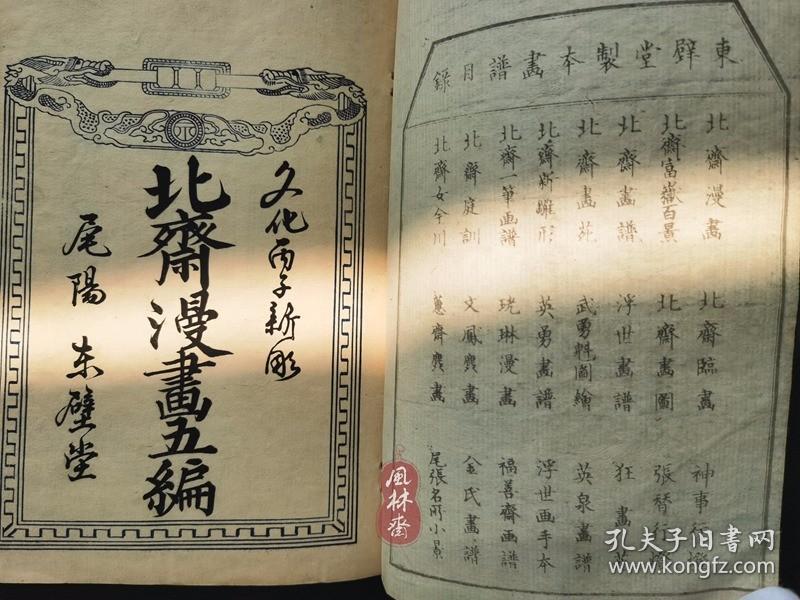 東壁堂製本畫譜目錄
北齋漫畫 北齋臨畫
北齋富嶽百景 北齋畫圖
北齋畫譜 浮世畫譜 狂畫
北齋畫苑 武勇魁圖繪 英泉畫譜
北齋新雛形 英勇畫譜 浮世画手本
北齋一筆画譜 珖琳漫畫 福善齋画譜
北齋庭訓 文鳳麁畫 金氏畫譜
北齋女今川 蕙齋麁畫 尾張名所小景
文化丙子新彫
北齋漫畫五編
尾陽 東壁堂
風林齋
孔夫子旧書网
www.kongfz.com